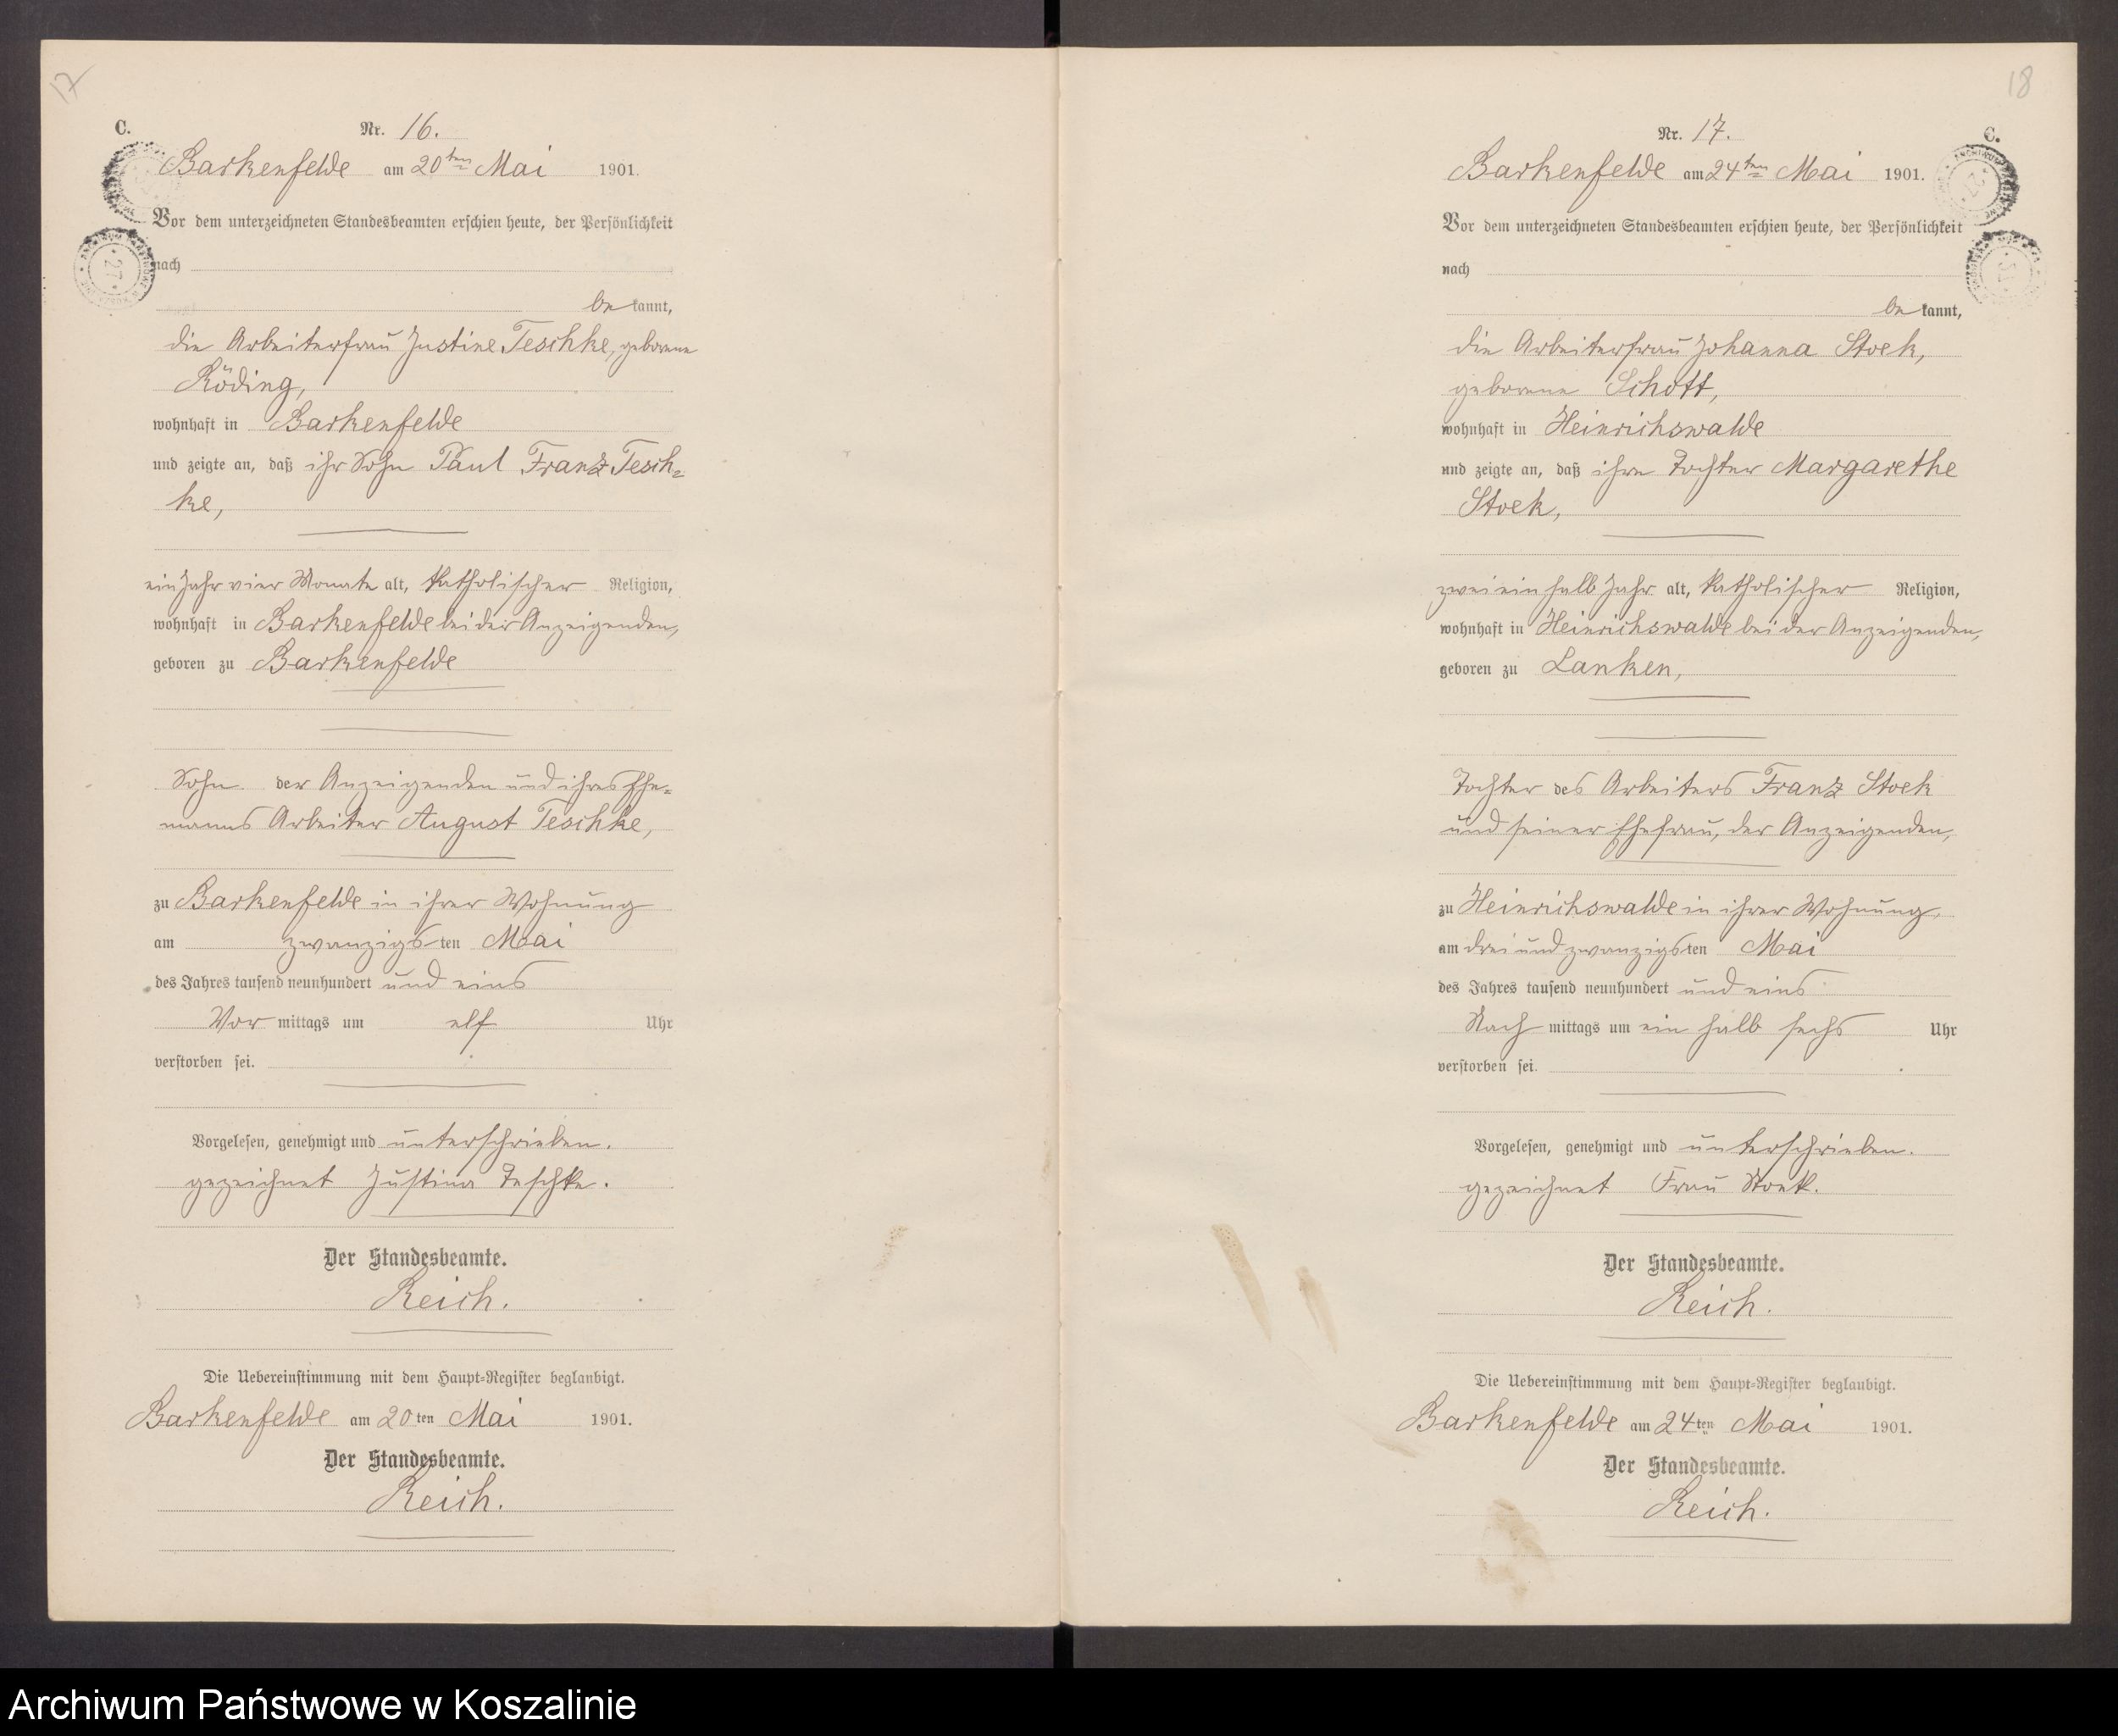 17
C.
Nr. 16.
Barkenfelde am 20ten Mai 1901.
Vor dem unterzeichneten Standesbeamten erschien heute, der Persönlichkeit
nach
be kannt,
die Arbeiterfrau Justine Teschke, geborene
Röding,
wohnhaft in Barkenfelde
und zeigte an, daß ihr Sohn Paul Franz Tesch=
ke,
ein Jahr vier Monate alt, katholischer Religion,
wohnhaft in Barkenfelde bei der Anzeigenden,
geboren zu Barkenfelde
Sohn der Anzeigenden und ihres Ehe=
manns Arbeiter August Teschke,
zu Barkenfelde in ihrer Wohnung
am zwanzigsten Mai
des Jahres tausend neunhundert und eins
Vor mittags um elf Uhr
verstorben sei.
Vorgelesen, genehmigt und unterschrieben.
gezeichnet Justina Teschke.
Der Standesbeamte.
Reich.
Die Uebereinstimmung mit dem Haupt=Register beglaubigt.
Barkenfelde am 20ten Mai 1901.
Der Standesbeamte.
Reich.
18
C.
Nr. 17.
Barkenfelde am 24ten Mai 1901.
Vor dem unterzeichneten Standesbeamten erschien heute, der Persönlichkeit
nach
be kannt,
die Arbeiterfrau Johanna Stoek,
geborene Schott,
wohnhaft in Heinrichswalde
und zeigte an, daß ihre Tochter Margarethe
Stoek,
zwei ein halb Jahr alt, katholischer Religion,
wohnhaft in Heinrichswalde bei der Anzeigenden,
geboren zu Lanken,
Tochter des Arbeiters Franz Stoek
und seiner Ehefrau, der Anzeigenden,
zu Heinrichswalde in ihrer Wohnung
am drei und zwanzigsten Mai
des Jahres tausend neunhundert und eins
Nach mittags um ein halb sechs Uhr
verstorben sei.
Vorgelesen, genehmigt und unterschrieben.
gezeichnet Frau Stoek.
Der Standesbeamte.
Reich.
Die Uebereinstimmung mit dem Haupt=Register beglaubigt.
Barkenfelde am 24ten Mai 1901.
Der Standesbeamte.
Reich.
Archiwum Państwowe w Koszalinie